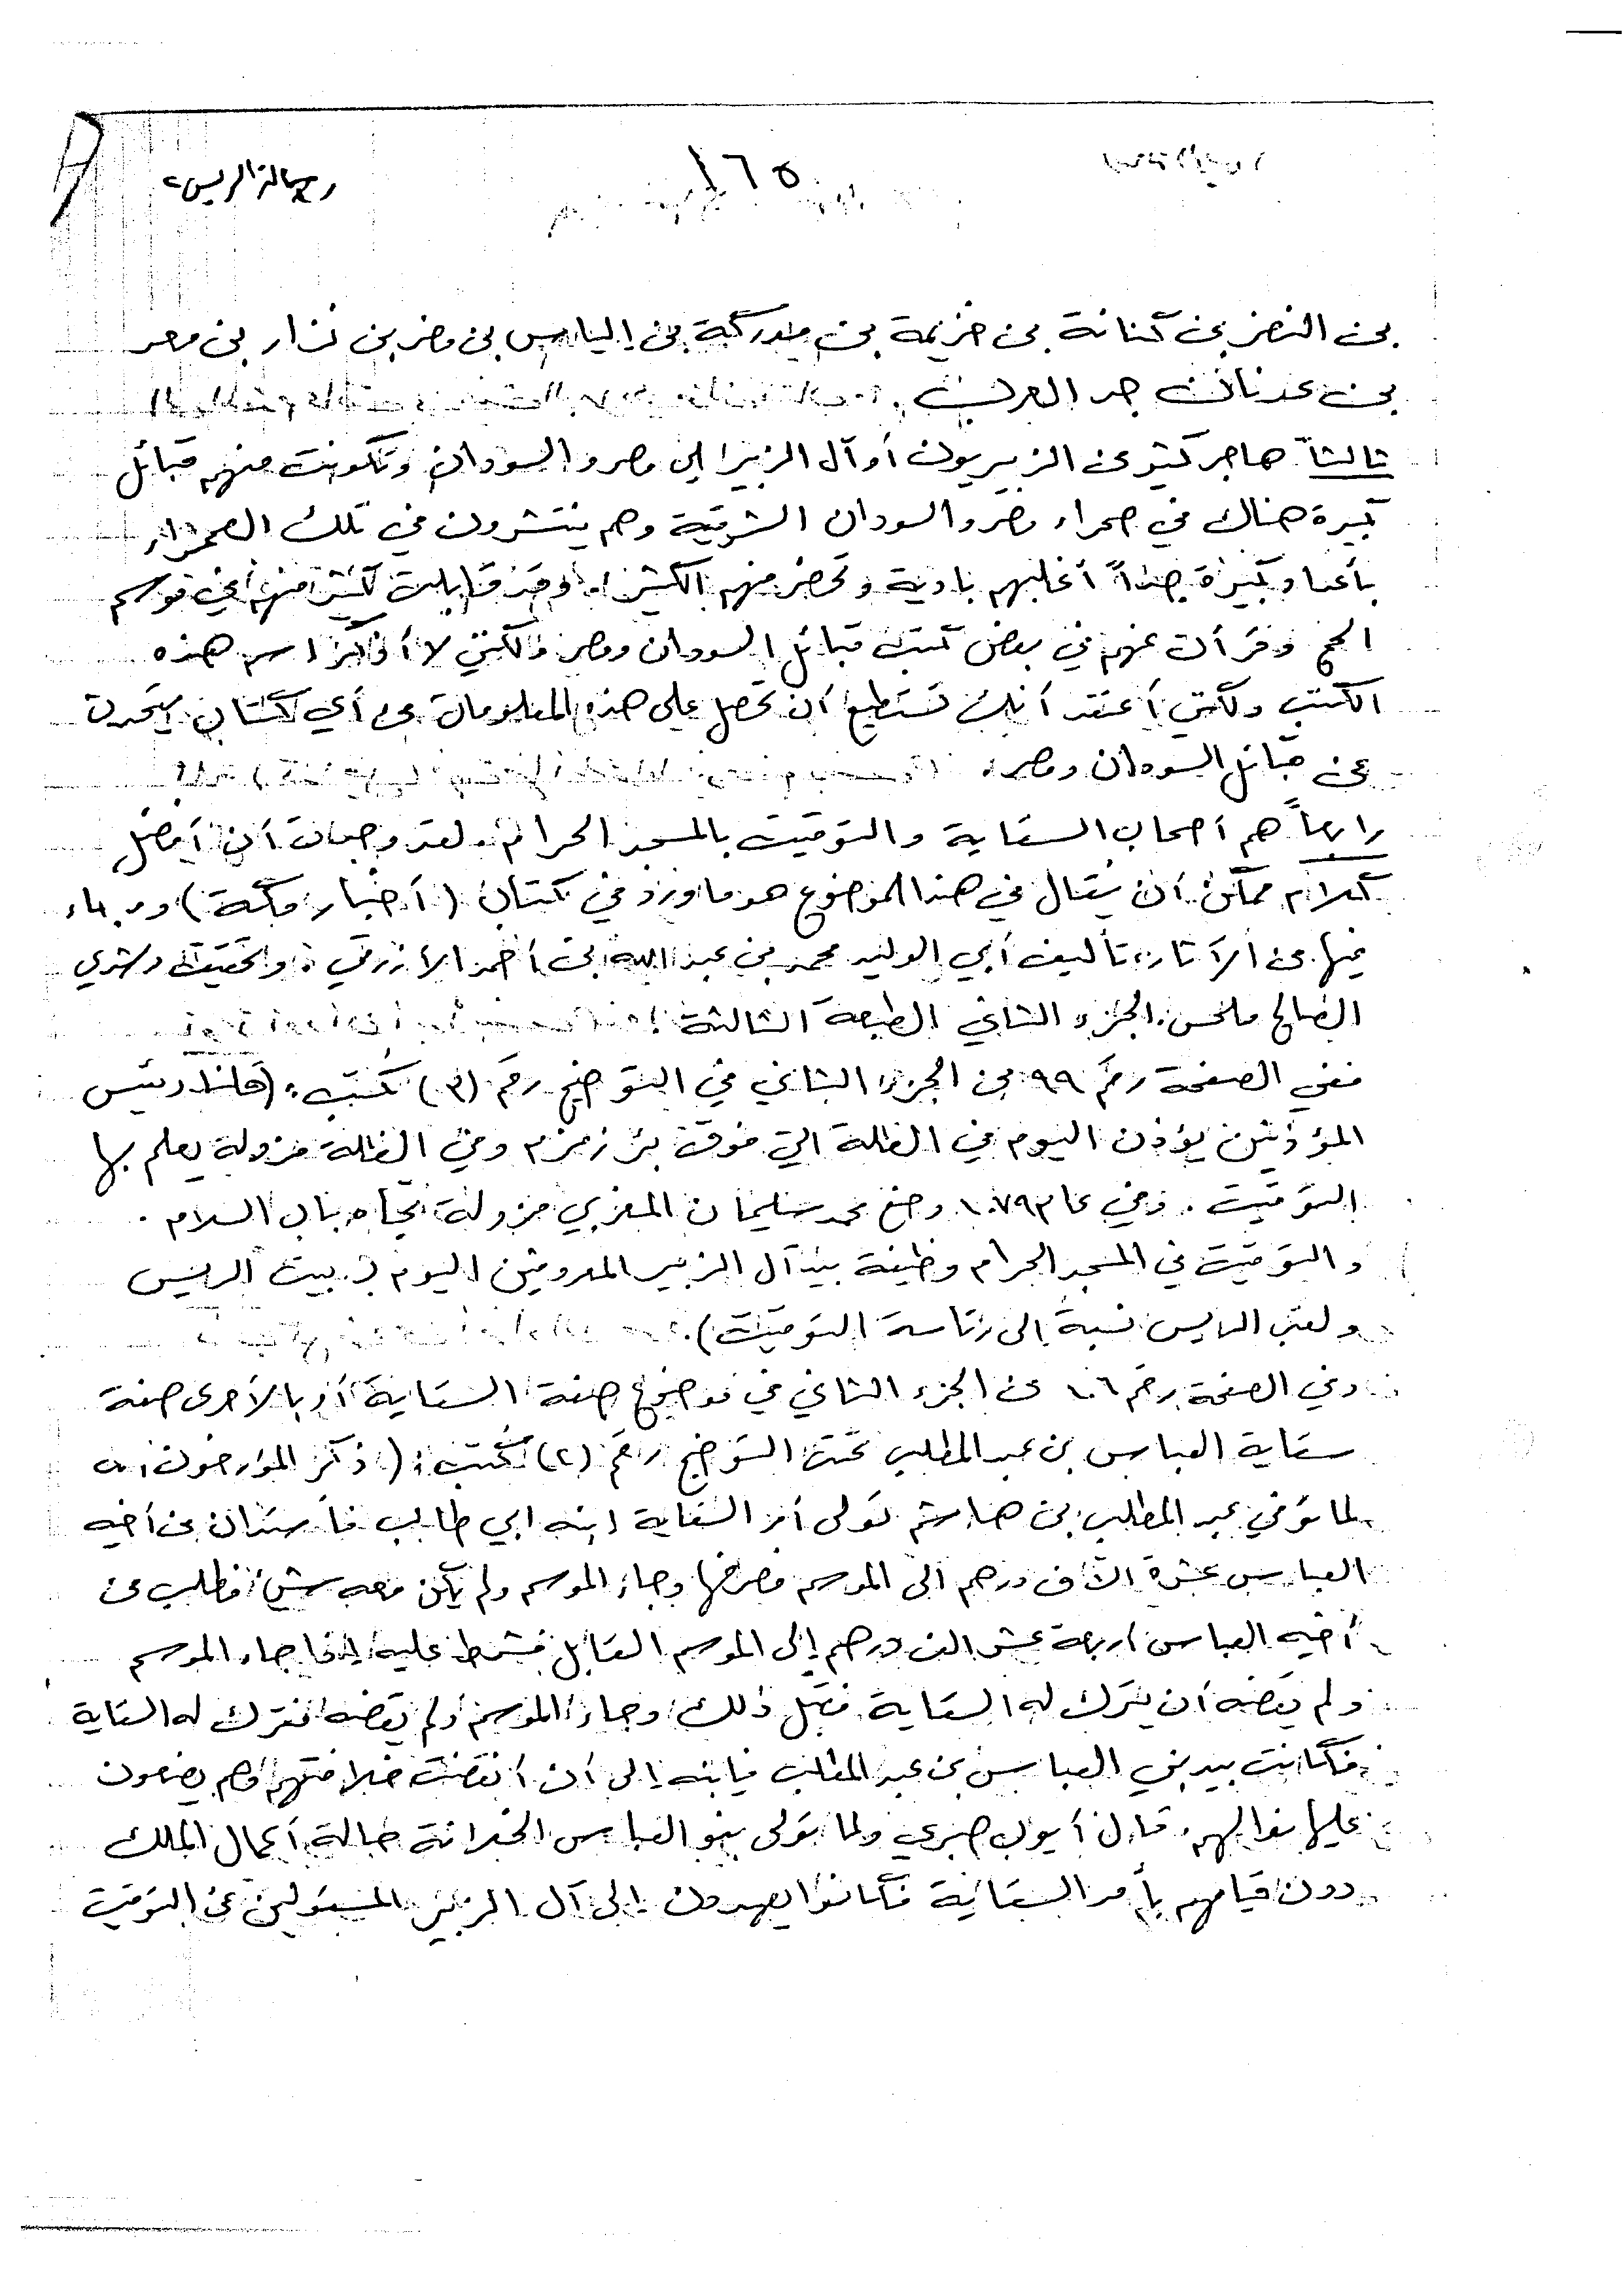 ١٦٥
رسالة الريس
بن النضر بن كنانة بن خزيمة بن مدركة بن إلياس بن مضر بن نزار بن معد
بن عدنان جد العرب.
ثالثاً هاجر كثير من الزبيريون أو آل الزبير إلى مصر والسودان وتكونت منهم قبائل
كبيرة هناك في صحراء مصر والسودان الشرقية وهم ينتشرون في تلك الصحراء
بأعداد كبيرة جداً أغلبهم بادية وتحضر منهم الكثير. وقد قابلت كثير منهم في موسم
الحج وقرأت عنهم في بعض كتب قبائل السودان ومصر ولكنني لا أذكر اسم هذه
الكتب ولكني أعتقد أنك تستطيع أن تحصل على هذه المعلومات من أي كتاب يتحدث
عن قبائل السودان ومصر.
رابعاً هم أصحاب السقاية والتوقيت بالمسجد الحرام. لقد وجدت أن أفضل
كلام ممكن أن يقال في هذا الموضوع هو ما ورد في كتاب (أخبار مكة) وما جاء
فيها من الآثار، تأليف أبي الوليد محمد بن عبد الله بن أحمد الأزرقي. وتحقيق رشدي
الصالح ملحس. الجزء الثاني الطبعة الثالثة
ففي الصفحة رقم ٩٩ من الجزء الثاني في التوضيح رقم (٣) كتب: (قلنا رئيس
المؤذنين يؤذن اليوم في الظلة التي فوق بئر زمزم وفي الظلة مزولة يعلم بها
التوقيت. وفي عام ١٠٧٩ وضع محمد سليمان المغربي مزولة تجاه باب السلام.
والتوقيت في المسجد الحرام وظيفة بيد آل الزبير المعروفين اليوم ببيت الريس
ولقب الريس نسبة إلى رئاسة التوقيت).
وفي الصفحة رقم ١٠٦ من الجزء الثاني في موضوع صفة السقاية أو بالأحرى صفة
سقاية العباس بن عبد المطلب تحت التوضيح رقم (٢) كتب: (ذكر المؤرخون أنه
لما توفي عبد المطلب بن هاشم تولى أمر السقاية ابنه ابي طالب فأستدان من أخيه
العباس عشرة الآف درهم الى الموسم فصرفها وجاء الموسم ولم يكن معه شئ فطلب من
أخيه العباس اربعة عشر الف درهم إلى الموسم القابل فشرط عليه إذا جاء الموسم
ولم يقضه أن يترك له السقاية فقبل ذلك وجاء الموسم ولم يقضه فترك له السقاية
فكانت بيد بني العباس بن عبد المطلب فابنه إلى أن أنقضت خلافتهم وهم يضعون
عليها نوابهم. قال أيوب صبري ولما تولى بنو العباس الخلافة حالت أعمال الملك
دون قيامهم بأمر السقاية فكانوا يعهدون إلى آل الزبير المسئولين عن التوقيت